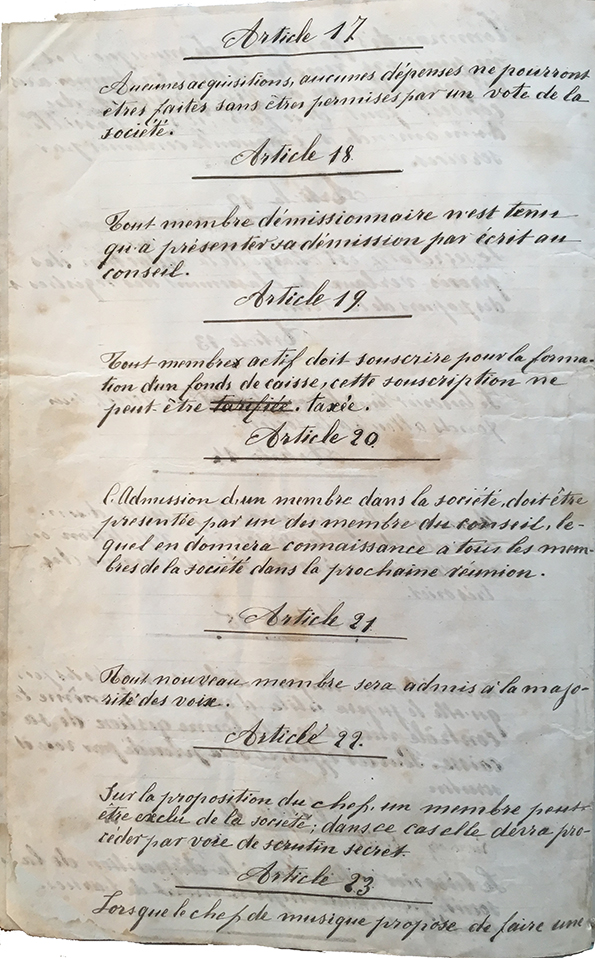 Article 17
Aucunes acquisitions, aucunes dépenses ne pourront
êtres faites sans êtres permises par un vote de la
société.
Article 18.
Tout membre démissionnaire n'est tenu
qu'à présenter sa démission par écrit au
conseil.
Article 19.
Tout membre actif doit souscrire pour la forma-
tion d'un fonds de caisse, cette souscription ne
peut-être tarifiée. taxée.
Article 20.
L'Admission d'un membre dans la société, doit être
présentée par un des membre du conseil, le-
quel en donnera connaissance à tous les mem-
bres de la société dans la prochaine réunion.
Article 21.
Tout nouveau membre sera admis à la majo-
rité des voix.
Article 22.
Sur la proposition du chef, un membre peut-
être exclu de la société; dans ce cas elle devra pro-
céder par voie de scrutin secret.
Article 23.
Lorsque le chef de musique propose de faire une